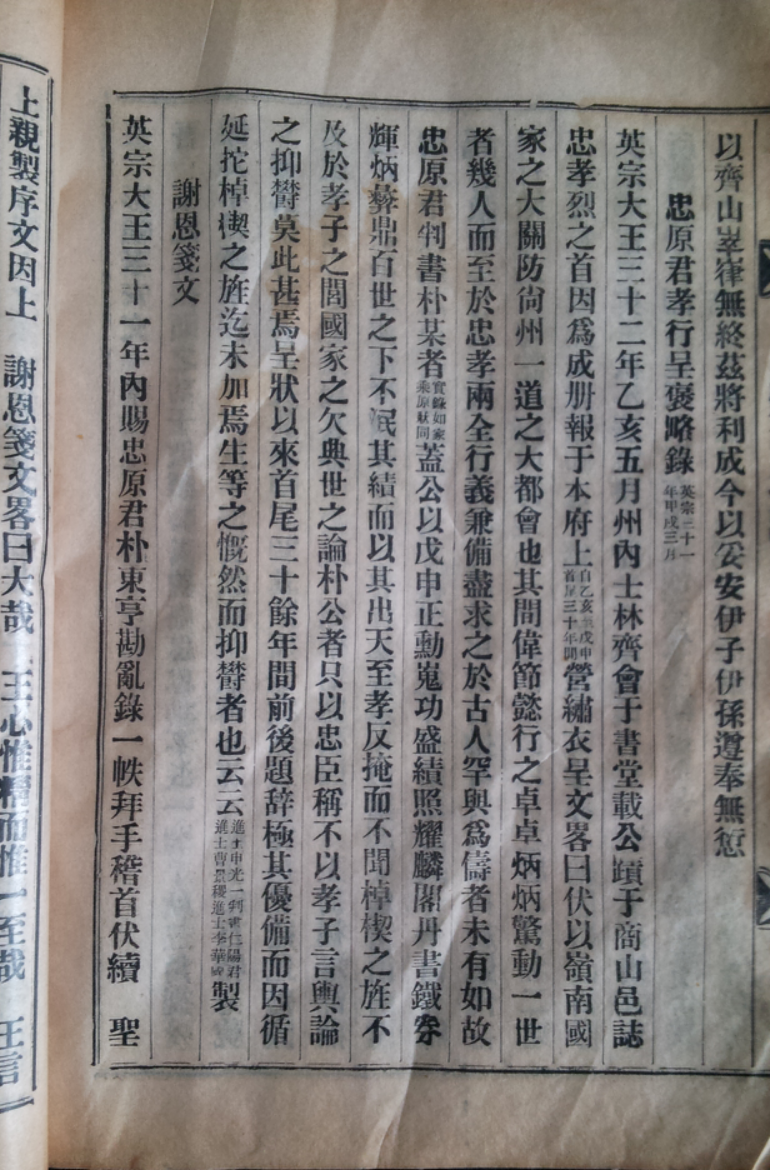 以齊山崒嵂無終茲將利成今以妥安伊子伊孫遵奉無愆
忠原君孝行呈褒略錄英宗三十一年甲戌三月
英宗大王三十二年乙亥五月州內士林齊會于書堂載公蹟于商山邑誌
忠孝烈之首因爲成册報于本府上自乙亥至戊申首尾三十年間營繡衣呈文畧曰伏以嶺南國
家之大關防尙州一道之大都會也其間偉節懿行之卓卓炳炳驚動一世
者幾人而至於忠孝兩全行義兼備盡求之於古人罕與爲儔者未有如故
忠原君判書朴某者實錄如家乘原狀同蓋公以戊申正勳嵬功盛績照耀麟閣丹書鐵券
輝炳彝鼎百世之下不泯其結而以其出天至孝反掩而不聞棹楔之旌不
及於孝子之閭國家之欠典世之論朴公者只以忠臣稱不以孝子言輿論
之抑欝莫此甚焉呈狀以來首尾三十餘年間前後題辞極其優備而因循
延拕棹楔之旌迄未加焉生等之慨然而抑欝者也云云進士申光一判書仁陽君進士曹景稷進士李華國製
謝恩箋文
英宗大王三十一年內賜忠原君朴東亨勘亂錄一帙拜手稽首伏續 聖
上親製序文因上 謝恩箋文畧曰大哉 王心惟精而惟一至哉 王言